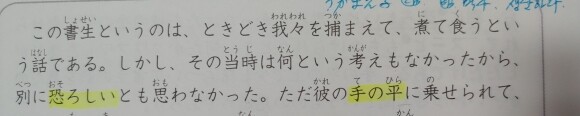 この書生というのは、ときどき我々を捕まえて、煮て食うとい
う話である。しかし、その当時は何という考えもなかったから、
別に恐ろしいとも思わなかった。ただ彼の手の平に乗せられて、